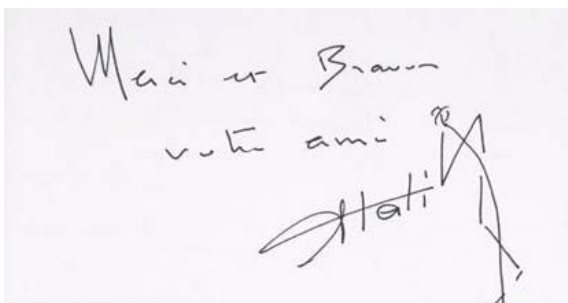 Merci et Bravo
votre ami